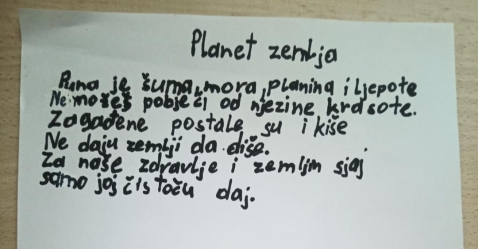 Planet zemlja
Puna je šuma, mora, planina i ljepote
Ne možeš pobjeći od njezine krasote.
Zagađene postale su i kiše
Ne daju zemlji da diše.
Za naše zdravlje i zemljin sjaj
samo joj čistoću daj.